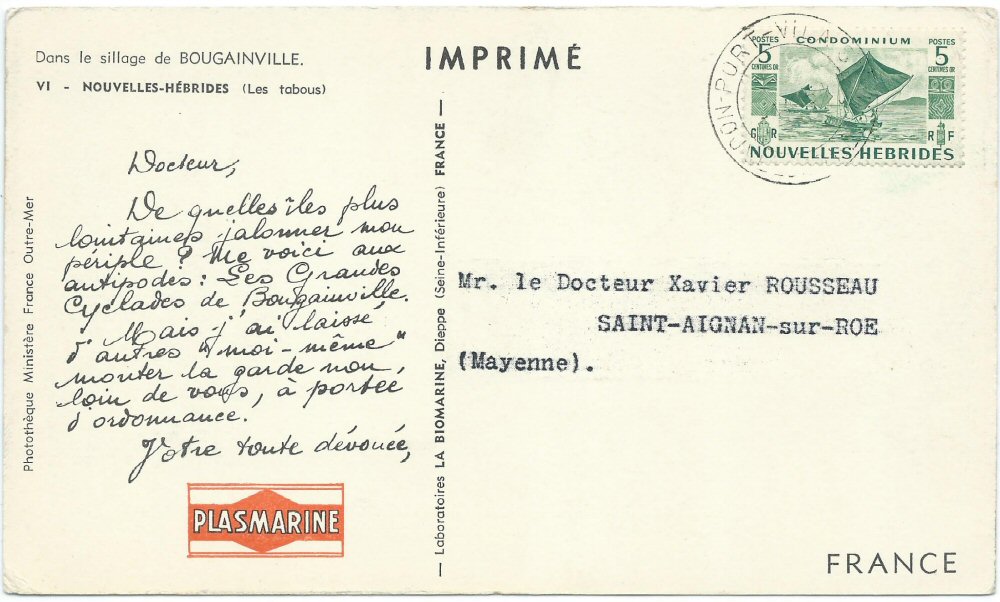 Dans le sillage de BOUGAINVILLE.
VI - NOUVELLES-HÉBRIDES (Les tabous)
Docteur,
De quelles îles plus
lointaines jalonner mon
périple ? Me voici aux
antipodes : Les Grandes
Cyclades de Bougainville.
Mais j'ai laissé
d'autres "moi-même"
monter la garde non
loin de vous, à portée
d'ordonnance.
Votre toute dévouée,
PLASMARINE
Photothèque Ministère France Outre-Mer
IMPRIMÉ
Laboratoires LA BIOMARINE, Dieppe (Seine-Inférieure) FRANCE
PORT-VILA
POSTES CONDOMINIUM POSTES
5 5
CENTIMES OR CENTIMES OR
G R R F
NOUVELLES HEBRIDES
Mr. le Docteur Xavier ROUSSEAU
SAINT-AIGNAN-sur-ROE
(Mayenne).
FRANCE